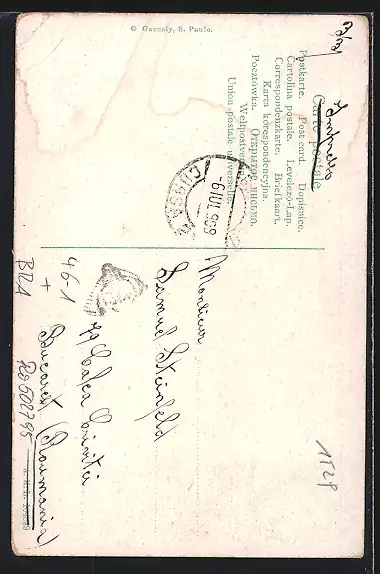 G Gaensly, S. Paulo.
Carte postale
Postkarte. Post card. Dopisnice.
Cartolina postale. Levelező-Lap.
Correspondenzkarte. Briefkaart.
Karta korespondencyjna.
Pocztówka. Открытое письмо.
Weltpostverein.
Union postale universelle.
Imprimés
CURSA
-6 IUL 939
Monsieur
Samuel Steinfeld
77 Calea Grivitei
Bucarest (Roumania)
46-1
+
BRA
Rg502795
1T29